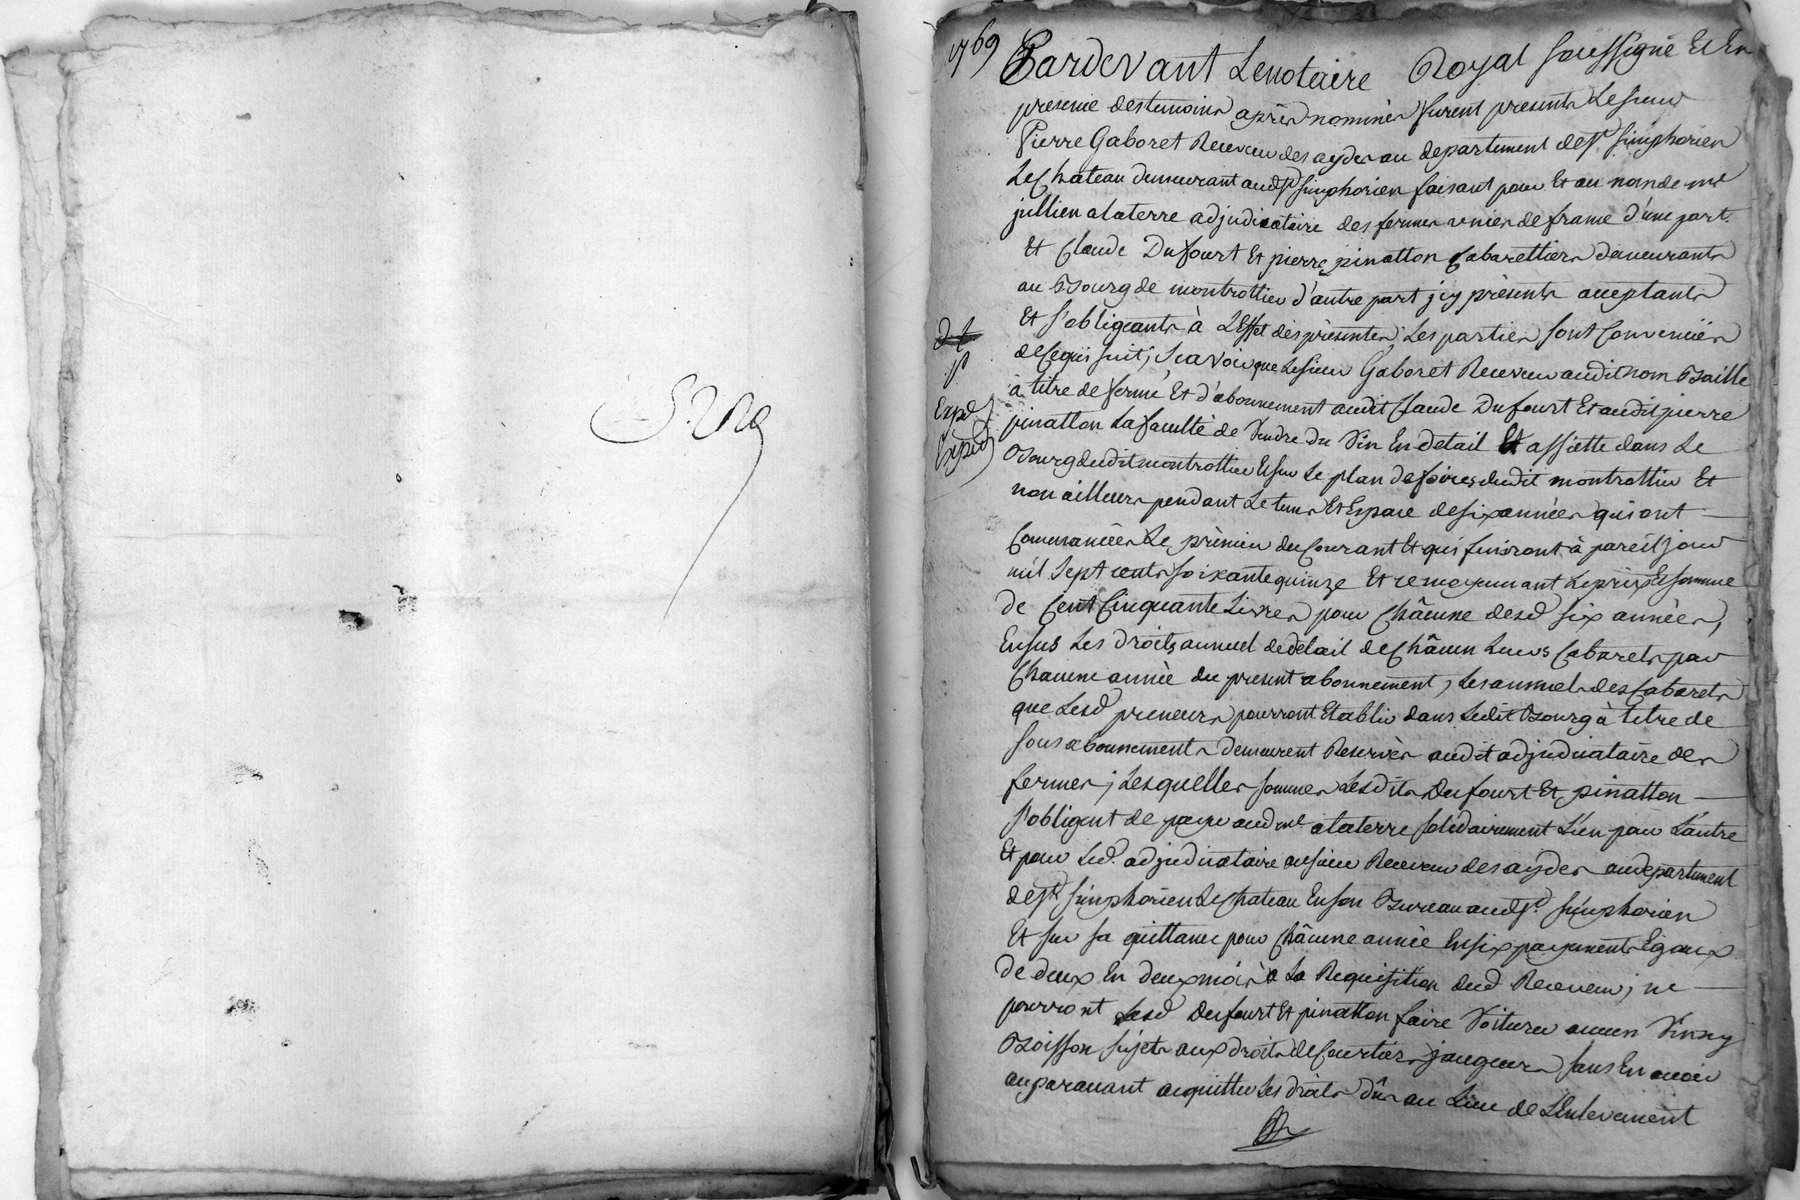 1769
Pardevant Lenotaire Royal soussigné Et En
presence destemoins après nommès furent presents Lesieur
Pierre Gaboret Receveur des aydes au departement de St. simphorien
Le Chateau demeurant audt St simphorien faisant pour Et au nom de me
jullien alaterre adjudicataire des fermes unies de france d'une part
Et Claude Dufourt Et pierre pinatton Cabarettiers demeurants
au Bourg de montrottier d'autre part jcy présents acceptants
Et s'obligeants à L'Effet des présentes Les parties sont Convenües
dt
deCequi suit; scavoir que Lesieur Gaboret Receveur audit nom Baille
à titre de ferme Et d'abonnement audit Claude Dufourt Et audit pierre
Expd
pinatton La faculté de Vendre du Vin En detail Et assiette dans Le
Expd
Bourg dudit montrottier Et sur Le plan de foires dudit montrottier Et
non ailleurs pendant Le tems Et Espace de six années qui ont
Commancées Le prèmier du Courant Et qui finiront à pareil jour
mil sept cents soixante quinze Et ce moyennant Le prix Et somme
de Cent Cinquante Livres pour Châcune desd six années,
Ensus Les droits annuel de detail de Châcun Leurs Cabarets par
Chacune année du present abonnement, Les annuels des Cabarets
que Lesd preneurs pourront Etablir dans Ledit Bourg à titre de
sous abonnements demeurent Reservès audit adjudicataire des
fermes; Lesquelles sommes Lesdits Dufourt Et pinatton
s'obligent de payer aud me alaterre solidairement L'un pour L'autre
Et pour Led. adjudicataire au sieur Receveur des aydes au departement
de St simphorien Le Chateau En son Bureau aud St. simphorien
Et sur sa quittance pour Châcune année En six payements Egaux
de deux En deux mois à La Requisition dud Receveur; ne
pourront Lesd Dufourt Et pinatton faire Voiturer aucun Vin ny
Boisson sujets aux droits de Courtiers jaugeurs sans En avoir
auparavant acquitter Les droits dûs au Lieu de L'Enlevement